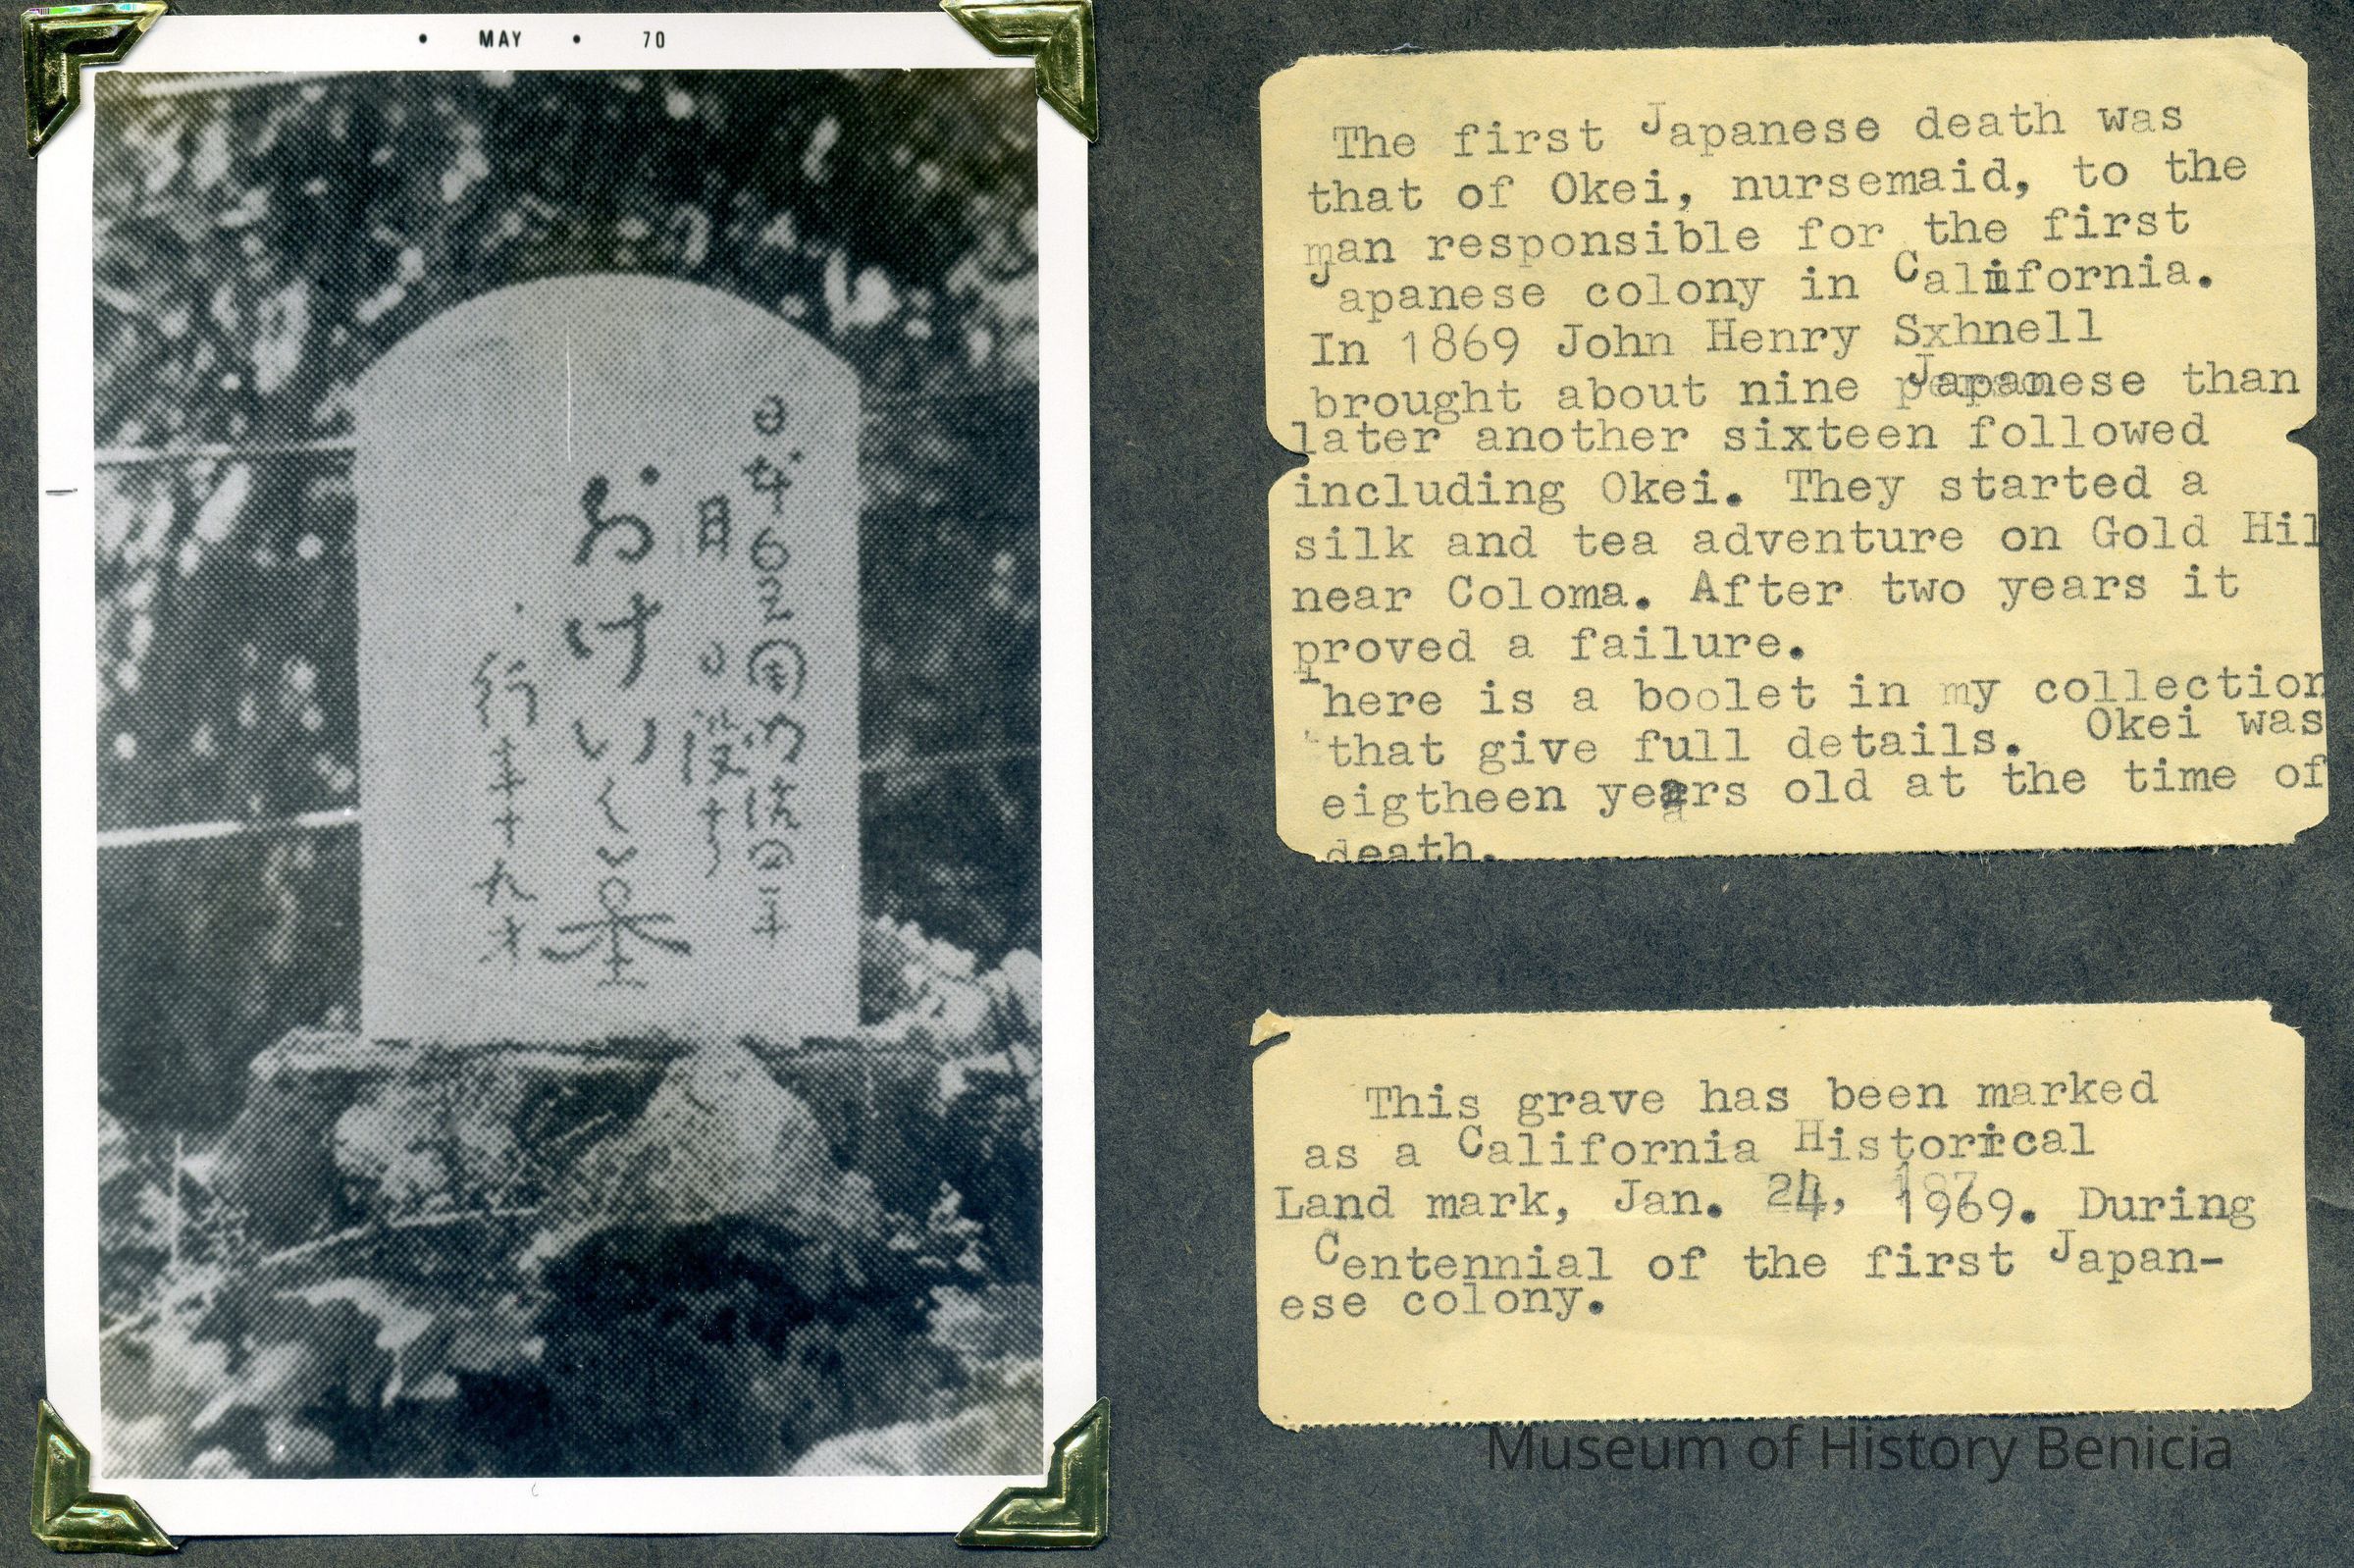 • MAY • 70
月 日 没す
おけい 墓
行年十九才
The first Japanese death was
that of Okei, nursemaid, to the
man responsible for the first
Japanese colony in California.
In 1869 John Henry Sxhnell
brought about nine Japanese than
later another sixteen followed
including Okei. They started a
silk and tea adventure on Gold Hil
near Coloma. After two years it
proved a failure.
There is a boolet in my collection
that give full details. Okei was
eigtheen years old at the time of
death.
This grave has been marked
as a California Historical
Land mark, Jan. 24, 1969. During
Centennial of the first Japan-
ese colony.
Museum of History Benicia